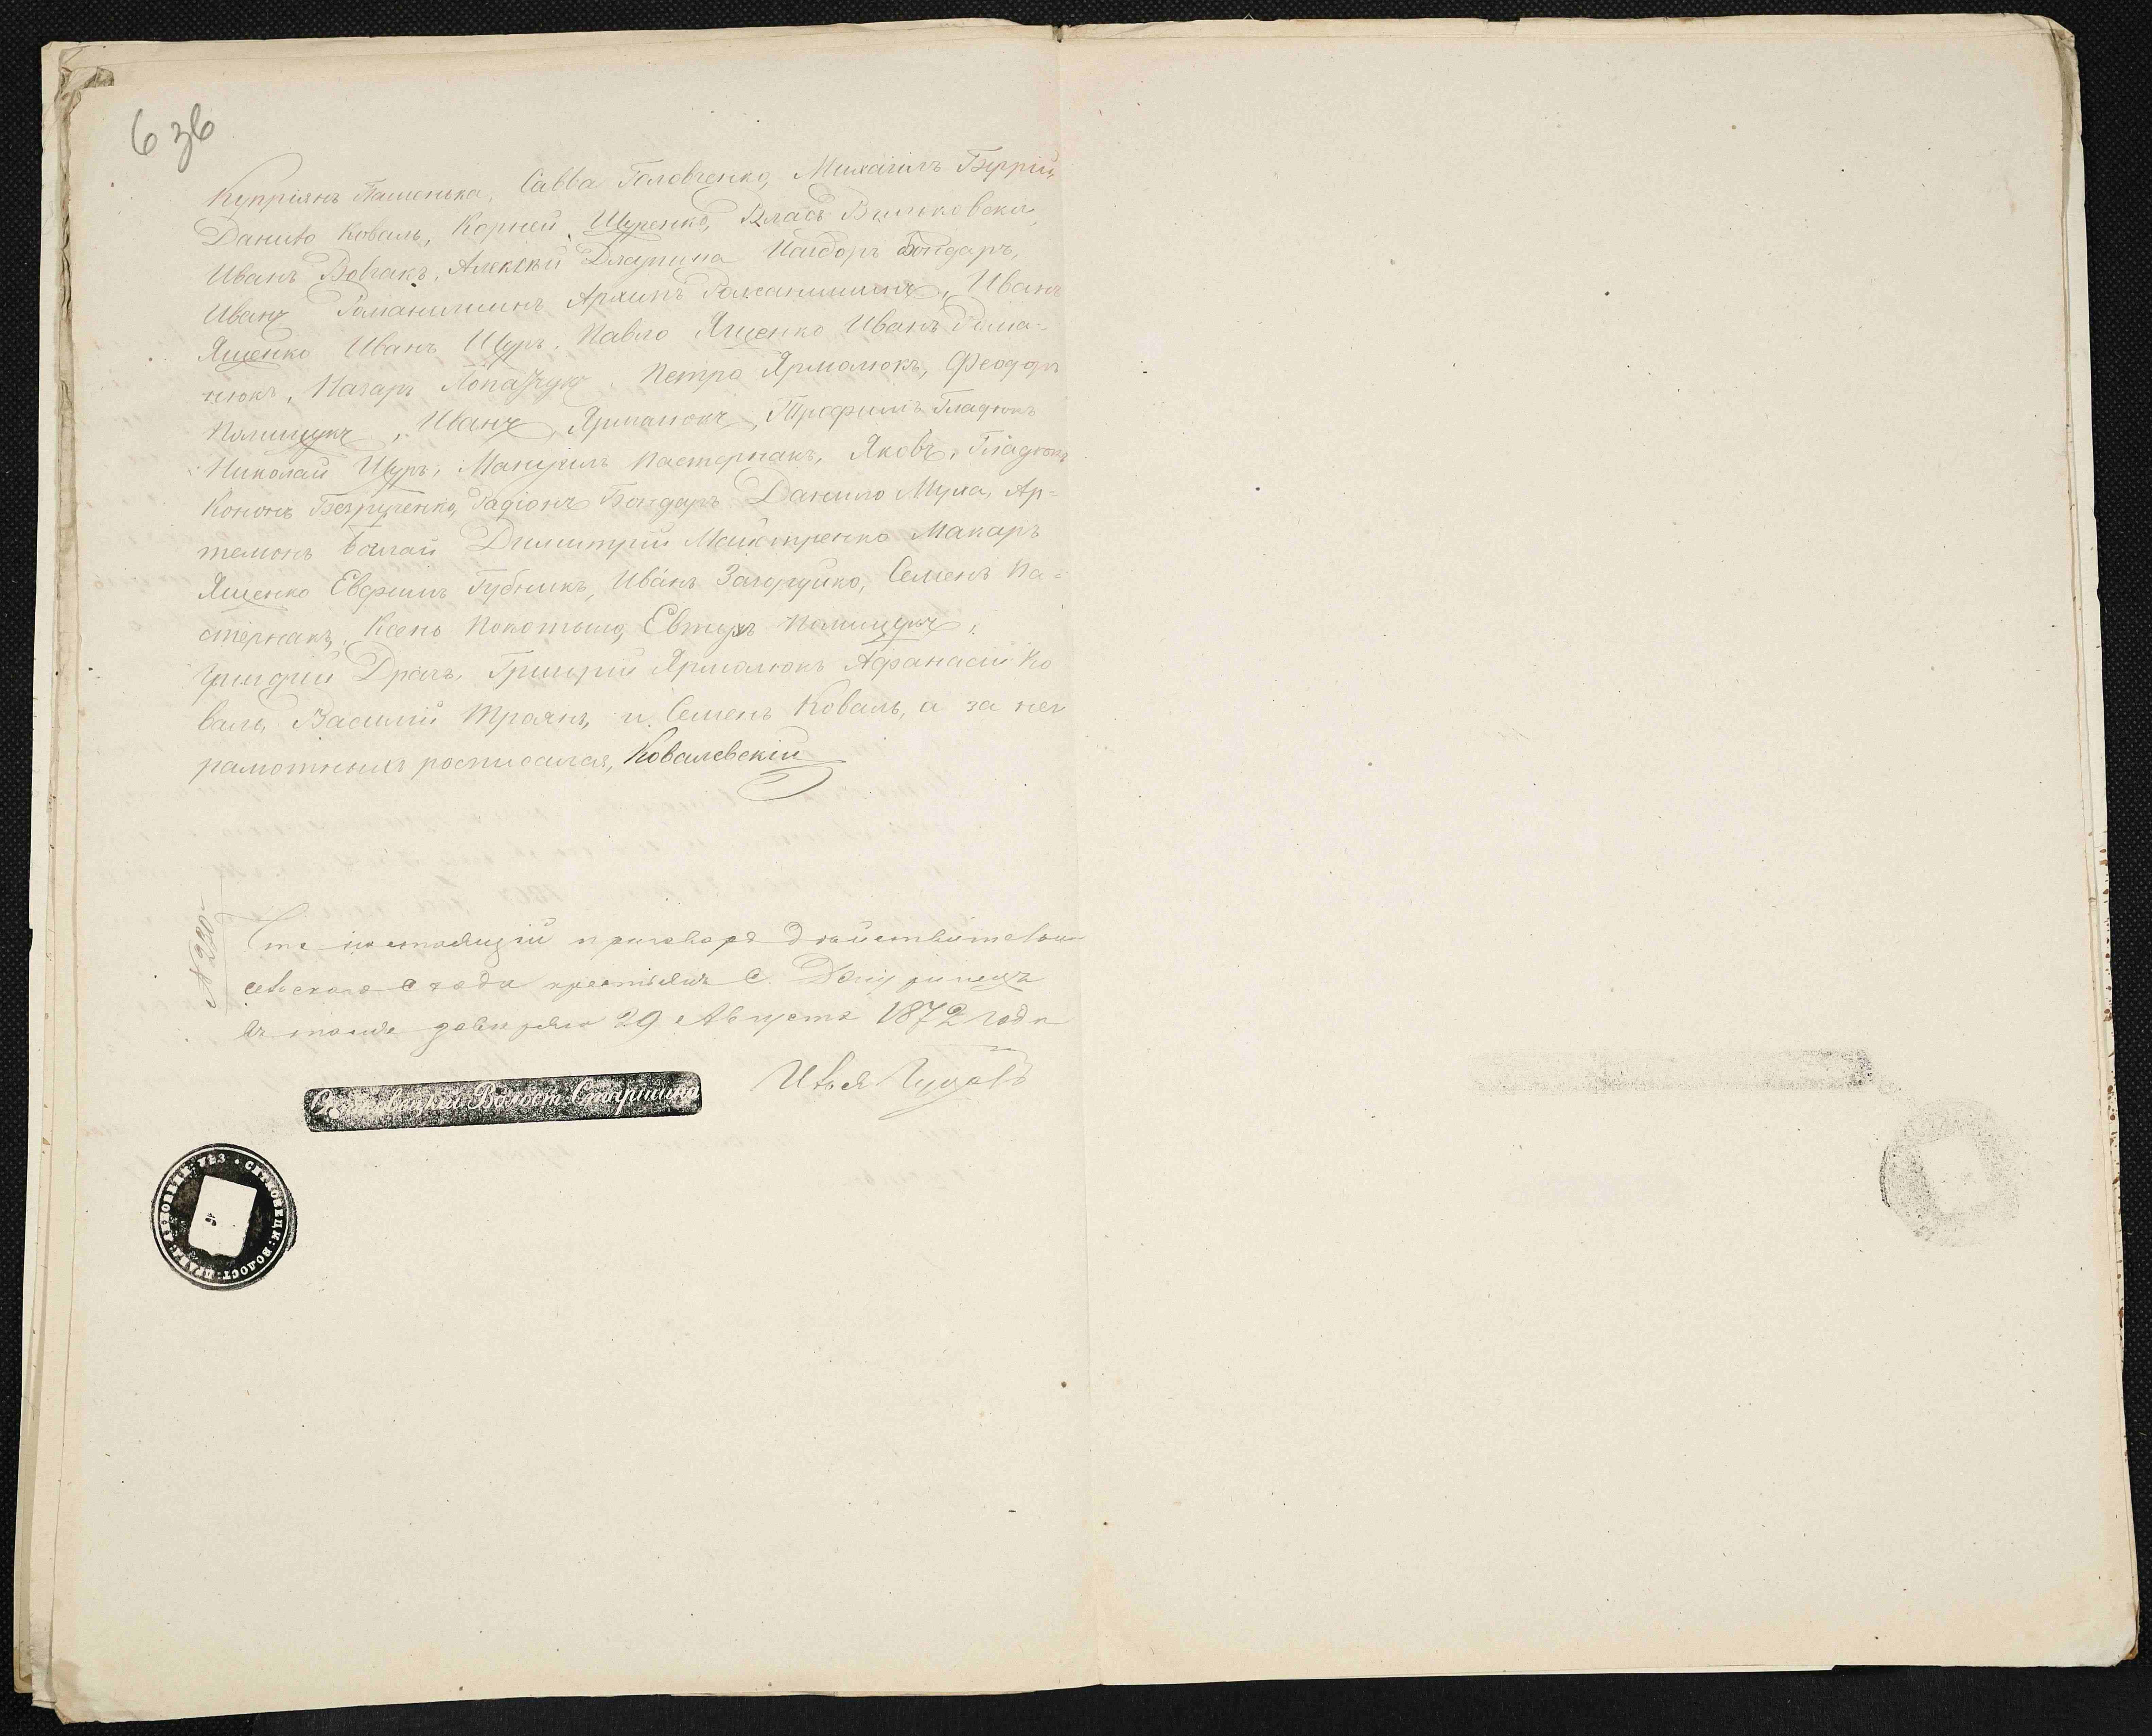 6 зв
Купріянъ Пашенька, Савва Головченко, Михаілъ Буррій,
Данило Коваль, Корней Щуренко, Власъ Вильковскій
Иванъ Вовчакъ, Алексѣй Бондарь,
Иванъ Романишинъ Архипъ Романишинъ, Иванъ
Ященко Иванъ Щуръ, Павло Ященко Иванъ Рома-
нюкъ, Назаръ Лопачукъ, Петро Ярмолюкъ, Феодоръ
Полищукъ, Иванъ Ярмолюкъ, Трофимъ Гладюкъ
Николай Щуръ, Мануилъ Пастернакъ, Яковъ Гладюкъ
Кононъ Безрученко, Радіонъ Бондарь Данило Муха, Ар-
темонъ Димитрій Макаръ
Ященко Евфимъ Губникъ, Иванъ Загоруйко, Семенъ Па-
стернакъ, Ксенъ Покотыло, Евтухъ Полищукъ,
Григорій Драчъ, Григорій Ярмолюкъ Афанасій Ко
валь, Василій Троянъ, и Семенъ Коваль, а за нег
рамотныхъ росписался, Ковалевскій
№ 230
Что настоящій приговоръ дѣйствительно
сельскаго схода крестьянъ с.
въ томъ завѣряю 29 Августа 1872 года
Волост. Старшина
Илья
УѢЗ. ВОЛОСТ. ПРАВЛ.